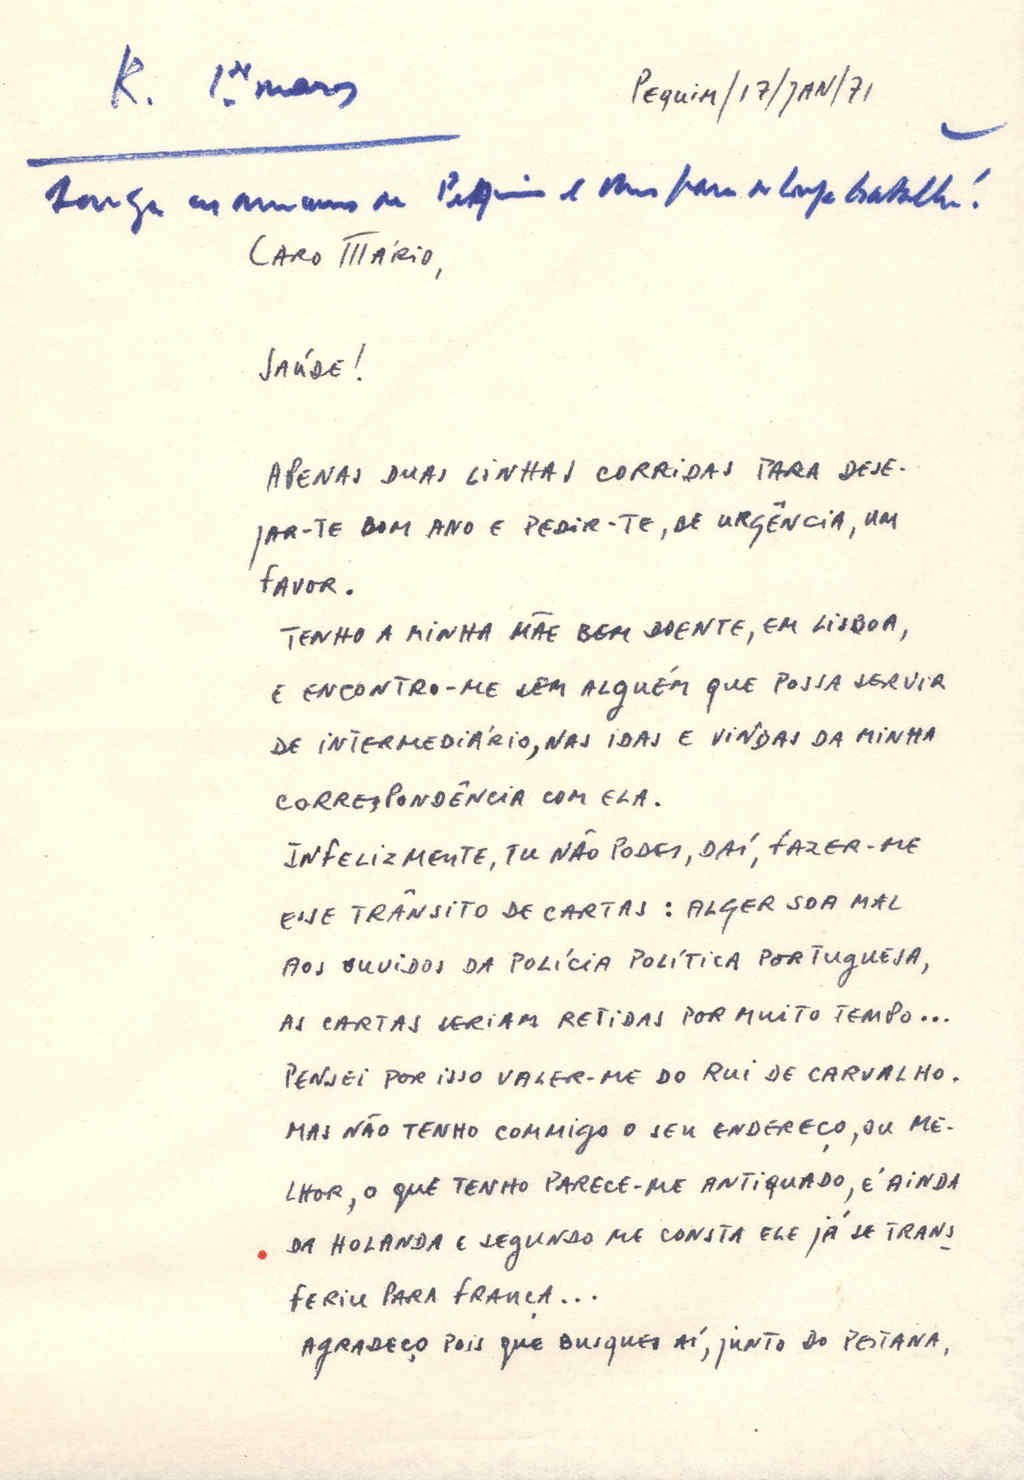 R. 1.de março
PEQUIM/17/JAN/71
de Pequim e
CARO MÁRIO,
SAÚDE!
APENAS DUAS LINHAS CORRIDAS PARA DESE-
JAR-TE BOM ANO E PEDIR-TE, DE URGÊNCIA, UM
FAVOR.
TENHO A MINHA MÃE BEM DOENTE, EM LISBOA,
E ENCONTRO-ME SEM ALGUÉM QUE POSSA SERVIR
DE INTERMEDIÁRIO, NAS IDAS E VINDAS DA MINHA
CORRESPONDÊNCIA COM ELA.
INFELIZMENTE, TU NÃO PODES, DAÍ, FAZER-ME
ESSE TRÂNSITO DE CARTAS: ALGER SOA MAL
AOS OUVIDOS DA POLÍCIA POLÍTICA PORTUGUESA,
AS CARTAS SERIAM RETIDAS POR MUITO TEMPO...
PENSEI POR ISSO VALER-ME DO RUI DE CARVALHO.
MAS NÃO TENHO COMMIGO O SEU ENDEREÇO, OU ME-
LHOR, O QUE TENHO PARECE-ME ANTIQUADO, É AINDA
DA HOLANDA E SEGUNDO ME CONSTA ELE JÁ SE TRANS
FERIU PARA FRANÇA...
AGRADEÇO POIS QUE BUSQUES AÍ, JUNTO DO PESTANA,